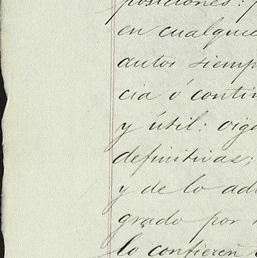 posiciones:
en cualquie
autos siemp
cia ó contin
y útil: oiga
definitivas;
y de lo ad
grado por
lo confieren